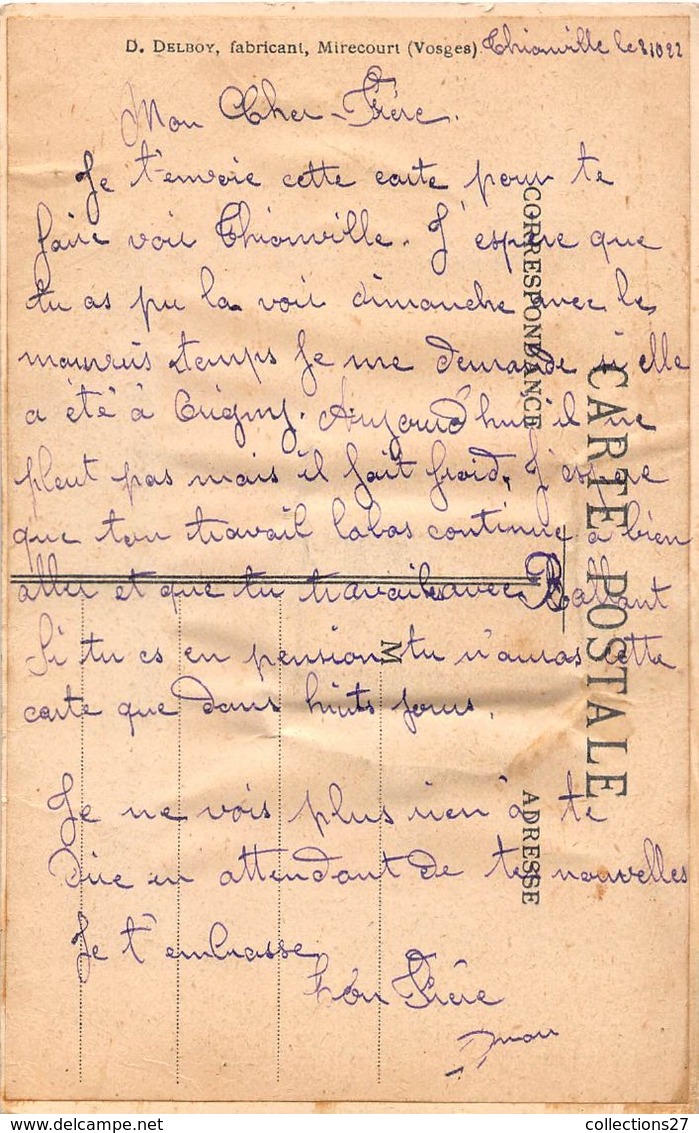 D. DELBOY, fabricant, Mirecourt (Vosges) Thionville le 31022
Mon Cher Frère.
Je t'envoie cette carte pour te
faire voir Thionville. J'espère que
tu as pu la voir dimanche avec le
mauvais temps Je me demande si elle
a été à Origny. Aujourd'hui il ne
pleut pas mais il fait froid, J'espère
que ton travail labas continue à bien
aller et que tu travailles avec Ballant
Si tu es en pension tu n'auras cette
carte que dans huits jours.
Je ne vois plus rien à te
dire en attendant de tes nouvelles
Je t'embrasse
Ton Frère
CORRESPONDANCE
CARTE POSTALE
M
ADRESSE
collections27